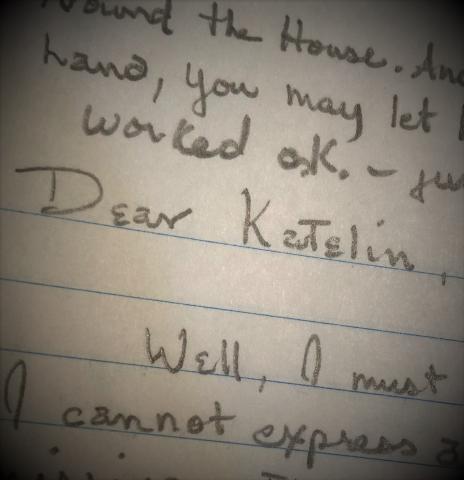 round the House. And
hand, you may let
worked ok. – ju
Dear Katelin,
Well, I must
I cannot express a